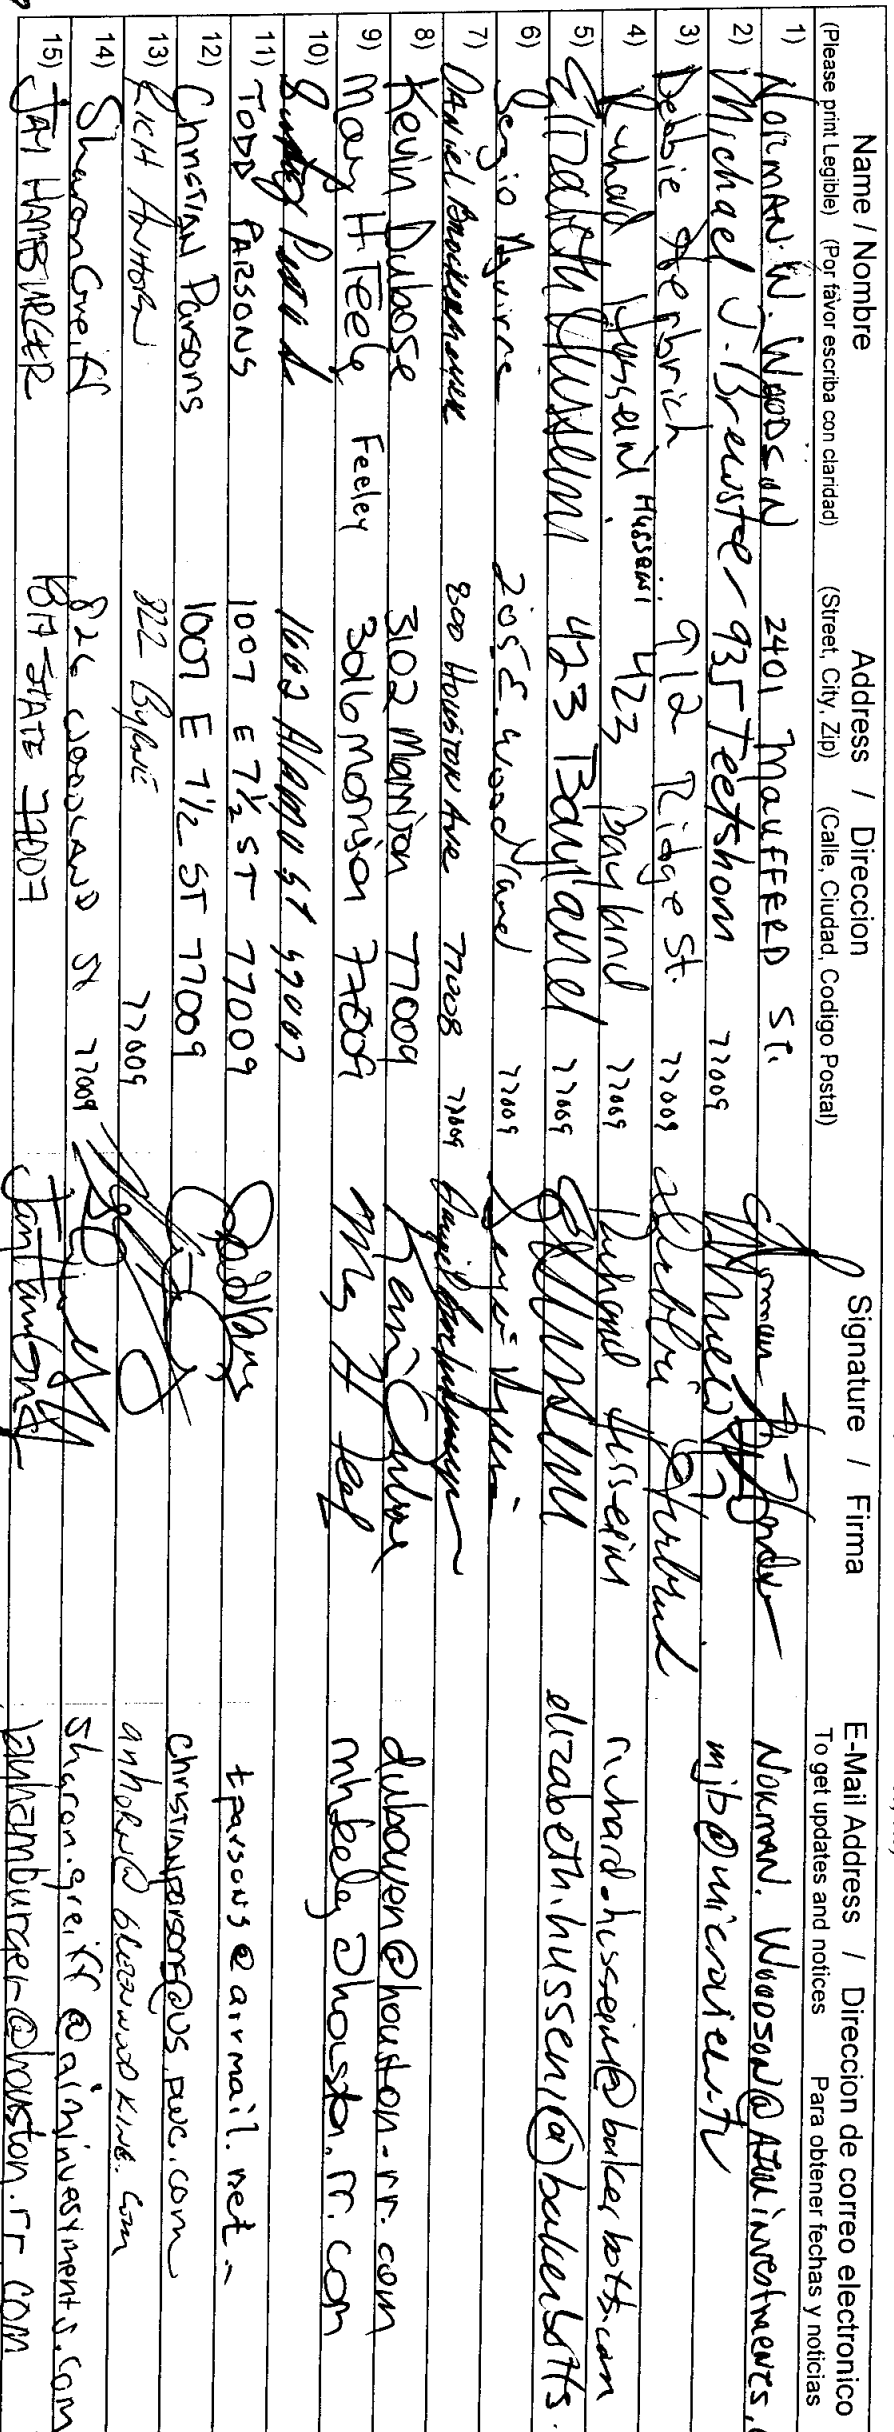 Name / Nombre Address / Direccion Signature / Firma E-Mail Address / Direccion de correo electronico
(Please print Legible) (Por favor escriba con claridad) (Street, City, Zip) (Calle, Ciudad, Codigo Postal) To get updates and notices Para obtener fechas y noticias
1) NORMAN. W. WOODSON 2401 MAUFFERD ST. NORMAN.WOODSON@AIMinvestments.
2) Michael J. Brewster 935 Teetshorn 77009 mjb@microview.tv
3) Debbie Herbrich 912 Ridge St. 77009 Debbie Herbrich
4) Richard Husseini Husseini 423 Bayland 77009 Richard Husseini richard.husseini@bakerbotts.com
5) Elizabeth Husseini 423 Bayland 77009 elizabeth.husseini@bakerbotts.
6) Sergio Aguirre 205 E. Woodland 77009
7) DANIEL 800 HOUSTON Ave 77008 77009
8) Kevin Dubose 3102 Morrison 77009 dubowen@houston.rr.com
9) Mary H Feeley Feeley 3016 Morrison 77009 mhfeeley@houston.rr.com
10) 1602 Alamo St 77007
11) TODD PARSONS 1007 E 7 1/2 ST 77009 tparsons@airmail.net
12) Christian Parsons 1007 E 7 1/2 ST 77009 christian.parsons@us.pwc.com
13) RICH ANHORN 822 BYRNE 77009 anhorn@GREENWOODKING.com
14) Sharon Greiff 826 WOODLAND St 77009 sharon.greiff@aiminvestments.com
15) JAN HAMBURGER STATE 77007 Jan Hamburger janhamburger@houston.rr.com